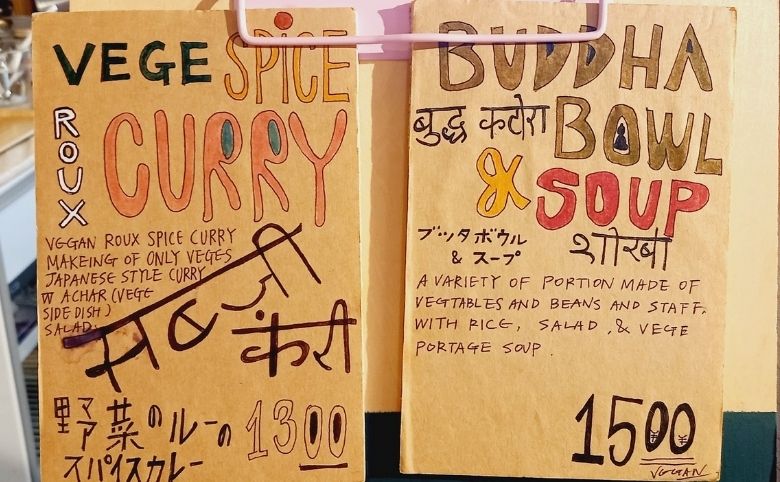 VEGE SPiCE
ROUX
CURRY
VGGAN ROUX SPICE CURRY
MAKEING OF ONLY VEGES
JAPANESE STYLE CURRY
W ACHAR (VEGE
SIDE DISH)
SALAD.
सब्जी
करी
野菜のルーの
スパイスカレー
1300
BUDDHA
बुद्ध कटोरा
BOWL
& SOUP
ブッダボウル
& スープ
शोरबा
A VARIETY OF PORTION MADE OF
VEGTABLES AND BEANS AND STAFF.
WITH RICE, SALAD, & VEGE
PORTAGE SOUP.
1500
VGGAN